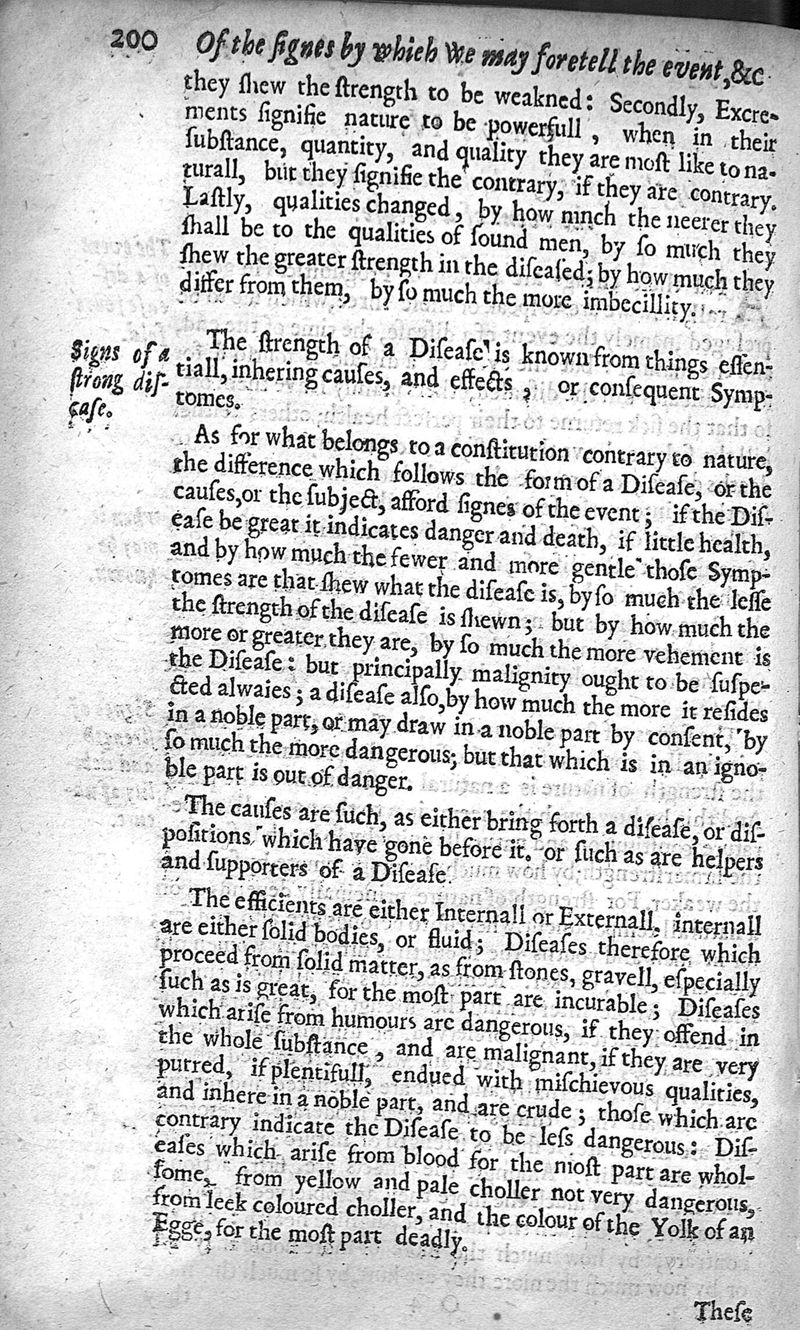 200 Of the ſignes by which We may foretell the event, &c
they ſhew the ſtrength to be weakned: Secondly, Excre-
ments ſignifie nature to be powerfull, when in their
ſubſtance, quantity, and quality they are moſt like to na-
turall, but they ſignifie the contrary, if they are contrary.
Laſtly, qualities changed, by how much the neerer they
ſhall be to the qualities of ſound men, by ſo much they
ſhew the greater ſtrength in the diſeaſed; by how much they
differ from them, by ſo much the more imbecillity.
Signs of a
ſtrong diſ-
eaſe.
The ſtrength of a Diſeaſe is known from things eſſen-
tiall, inhering cauſes, and effects, or conſequent Symp-
tomes.
As for what belongs to a conſtitution contrary to nature,
the difference which follows the form of a Diſeaſe, or the
cauſes, or the ſubject, afford ſignes of the event; if the Diſ-
eaſe be great it indicates danger and death, if little health,
and by how much the fewer and more gentle thoſe Symp-
tomes are that ſhew what the diſeaſe is, by ſo much the leſſe
the ſtrength of the diſeaſe is ſhewn; but by how much the
more or greater they are, by ſo much the more vehement is
the Diſeaſe: but principally malignity ought to be ſuſpe-
cted alwaies; a diſeaſe alſo, by how much the more it reſides
in a noble part, or may draw in a noble part by conſent, by
ſo much the more dangerous; but that which is in an igno-
ble part is out of danger.
The cauſes are ſuch, as either bring forth a diſeaſe, or diſ-
poſitions which have gone before it. or ſuch as are helpers
and ſupporters of a Diſeaſe.
The efficients are either Internall or Externall, internall
are either ſolid bodies, or fluid; Diſeaſes therefore which
proceed from ſolid matter, as from ſtones, gravell, eſpecially
ſuch as is great, for the moſt part are incurable; Diſeaſes
which ariſe from humours are dangerous, if they offend in
the whole ſubſtance, and are malignant, if they are very
putred, if plentifull, endued with miſchievous qualities,
and inhere in a noble part, and are crude; thoſe which are
contrary indicate the Diſeaſe to be leſs dangerous: Diſ-
eaſes which ariſe from blood for the moſt part are whol-
ſome, from yellow and pale choller not very dangerous,
from leek coloured choller, and the colour of the Yolk of an
Egge, for the moſt part deadly.
Theſe